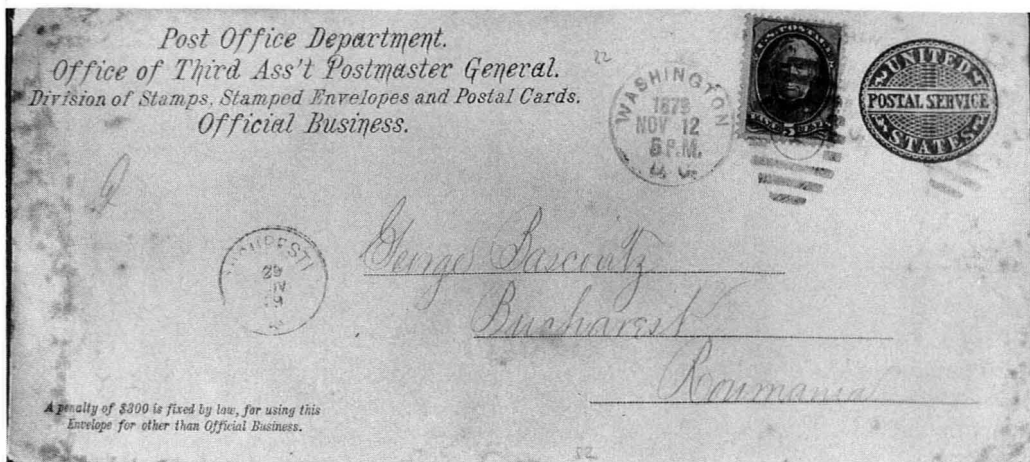 Post Office Department.
Office of Third Ass't Postmaster General.
Division of Stamps, Stamped Envelopes and Postal Cards.
Official Business.
22
WASHINGTON
1878
NOV 12
5 P.M.
D.C.
U.S. POSTAGE
UNITED
POSTAL SERVICE
STATES
BUCURESTI
George
Bucharest
Roumania
A penalty of $300 is fixed by law, for using this
Envelope for other than Official Business.